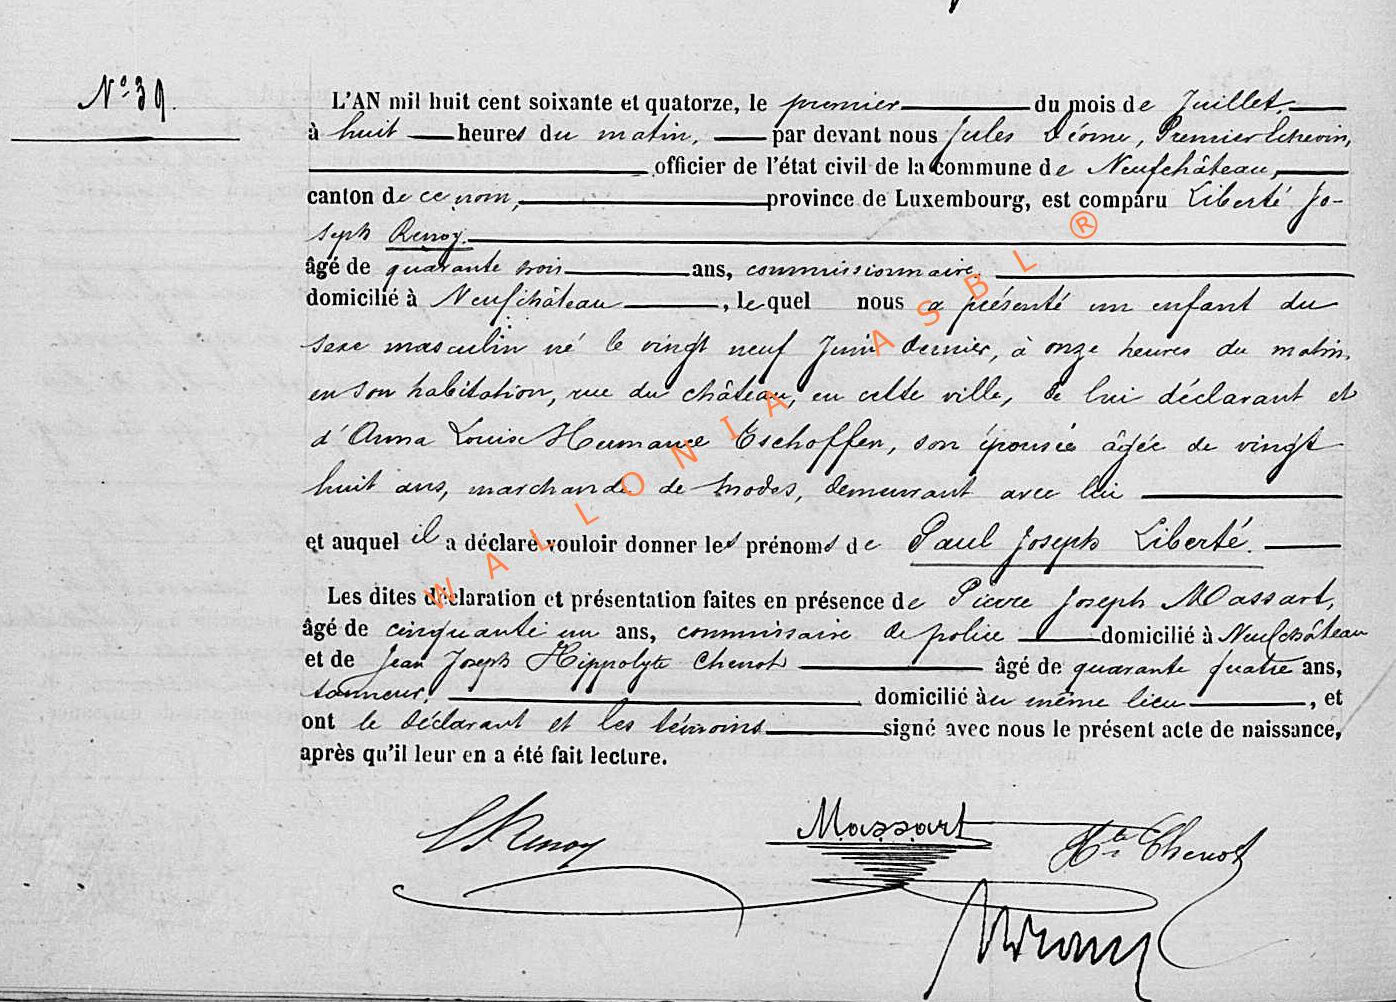 N° 39.
L'AN mil huit cent soixante et quatorze, le premier du mois de Juillet,
à huit heures du matin, par devant nous Jules , Premier Echevin,
officier de l'état civil de la commune de Neufchâteau,
canton de ce nom, province de Luxembourg, est comparu Liberté Jo-
seph Renoy.
âgé de quarante trois ans, commissionnaire,
domicilié à Neufchâteau, lequel nous a présenté un enfant du
sexe masculin né le vingt neuf Juin dernier, à onze heures du matin,
en son habitation, rue du château, en cette ville, de lui déclarant et
d'Anna Louise Eschoffen, son épouse âgée de vingt
huit ans, marchande de modes, demeurant avec lui
et auquel il a déclaré vouloir donner les prénoms de Paul Joseph Liberté.
Les dites déclaration et présentation faites en présence de Pierre Joseph Massart,
âgé de cinquante un ans, commissaire de police domicilié à Neufchâteau
et de Jean Joseph Hippolyte Chenot âgé de quarante quatre ans,
tanneur, domicilié au même lieu, et
ont le déclarant et les témoins signé avec nous le présent acte de naissance,
après qu'il leur en a été fait lecture.
LJRenoy
Massart
Hte Chenot
WALLONIA ASBL ®